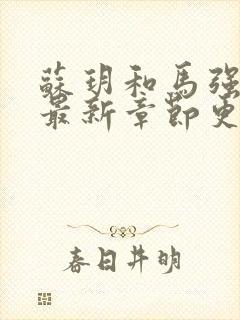 蘇玥和馬強
最新章節更
春日井明